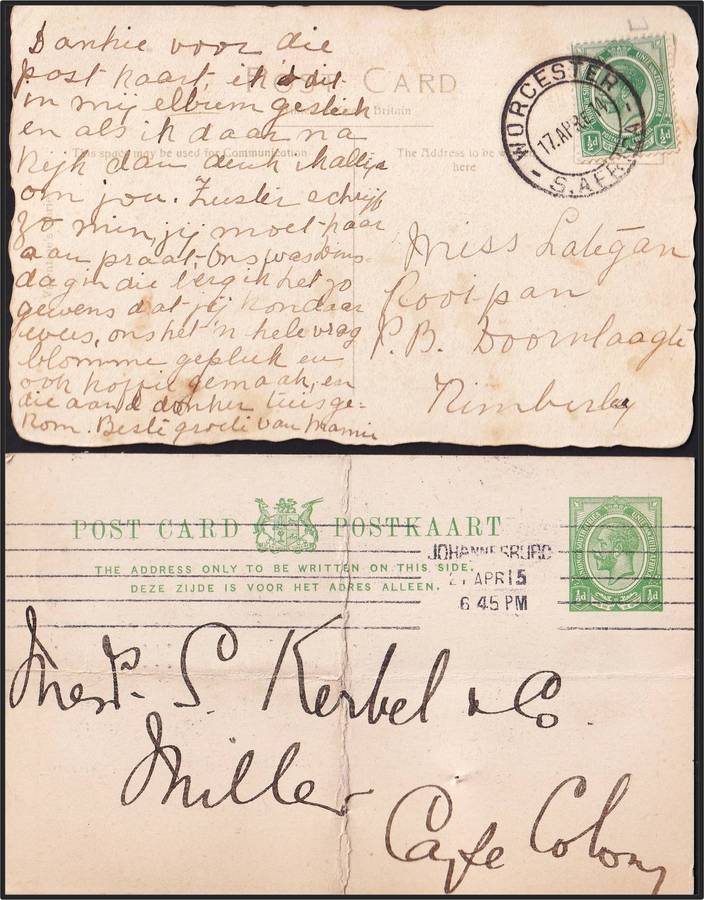 Dankie voor die
post kaart, ik s'dit
in mij elbum gesteek
en als ik daar na
kijk dan denk ik altijs
om jou. Zuster schrijf
zo min, jij moet haar
aan praat, ons was Dins-
dag in die berg ik het zo
gewens dat jij kon daar
wees, ons het 'n hele vrag
blomme gepluk en
ook koffie gemaak, en
die aand donker tuis ge-
kom. Beste groete van Mamie
POST CARD
Britain
This space may be used for Communication
The Address to be
here
WORCESTER
17.AP
14
S. AFRICA
½d
Miss Lategan
Rooipan
P.B. Doornlaagte
Kimberley
POST CARD POSTKAART
THE ADDRESS ONLY TO BE WRITTEN ON THIS SIDE.
DEZE ZIJDE IS VOOR HET ADRES ALLEEN.
JOHANNESBURG
21 APR 15
6 45 PM
½d ½d
Messrs. S. Kerbel & Co.
Miller
Cape Colony